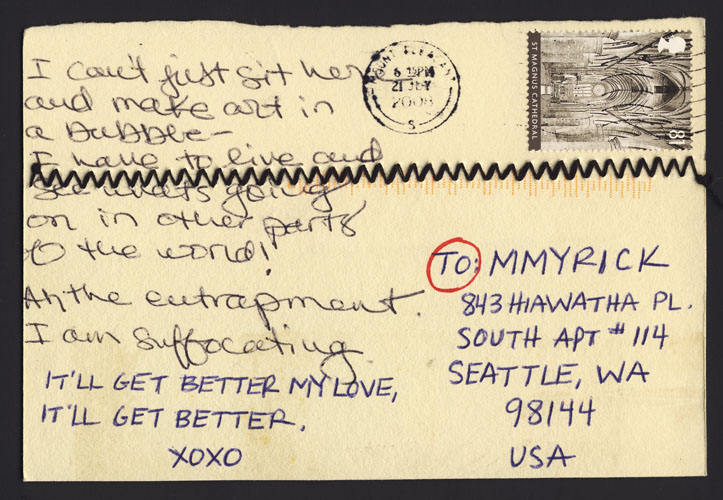 I can't just sit here
and make art in
a bubble—
I have to live and
see whats going
on in other parts
of the world!
Ah the entrapment.
I am suffocating.
IT'LL GET BETTER MY LOVE,
IT'LL GET BETTER.
XOXO
MOUNT PLEASANT
6 12PM
2008
S
ST MAGNUS CATHEDRAL
81
TO: MMYRICK
843 HIAWATHA PL.
SOUTH APT # 114
SEATTLE, WA
98144
USA